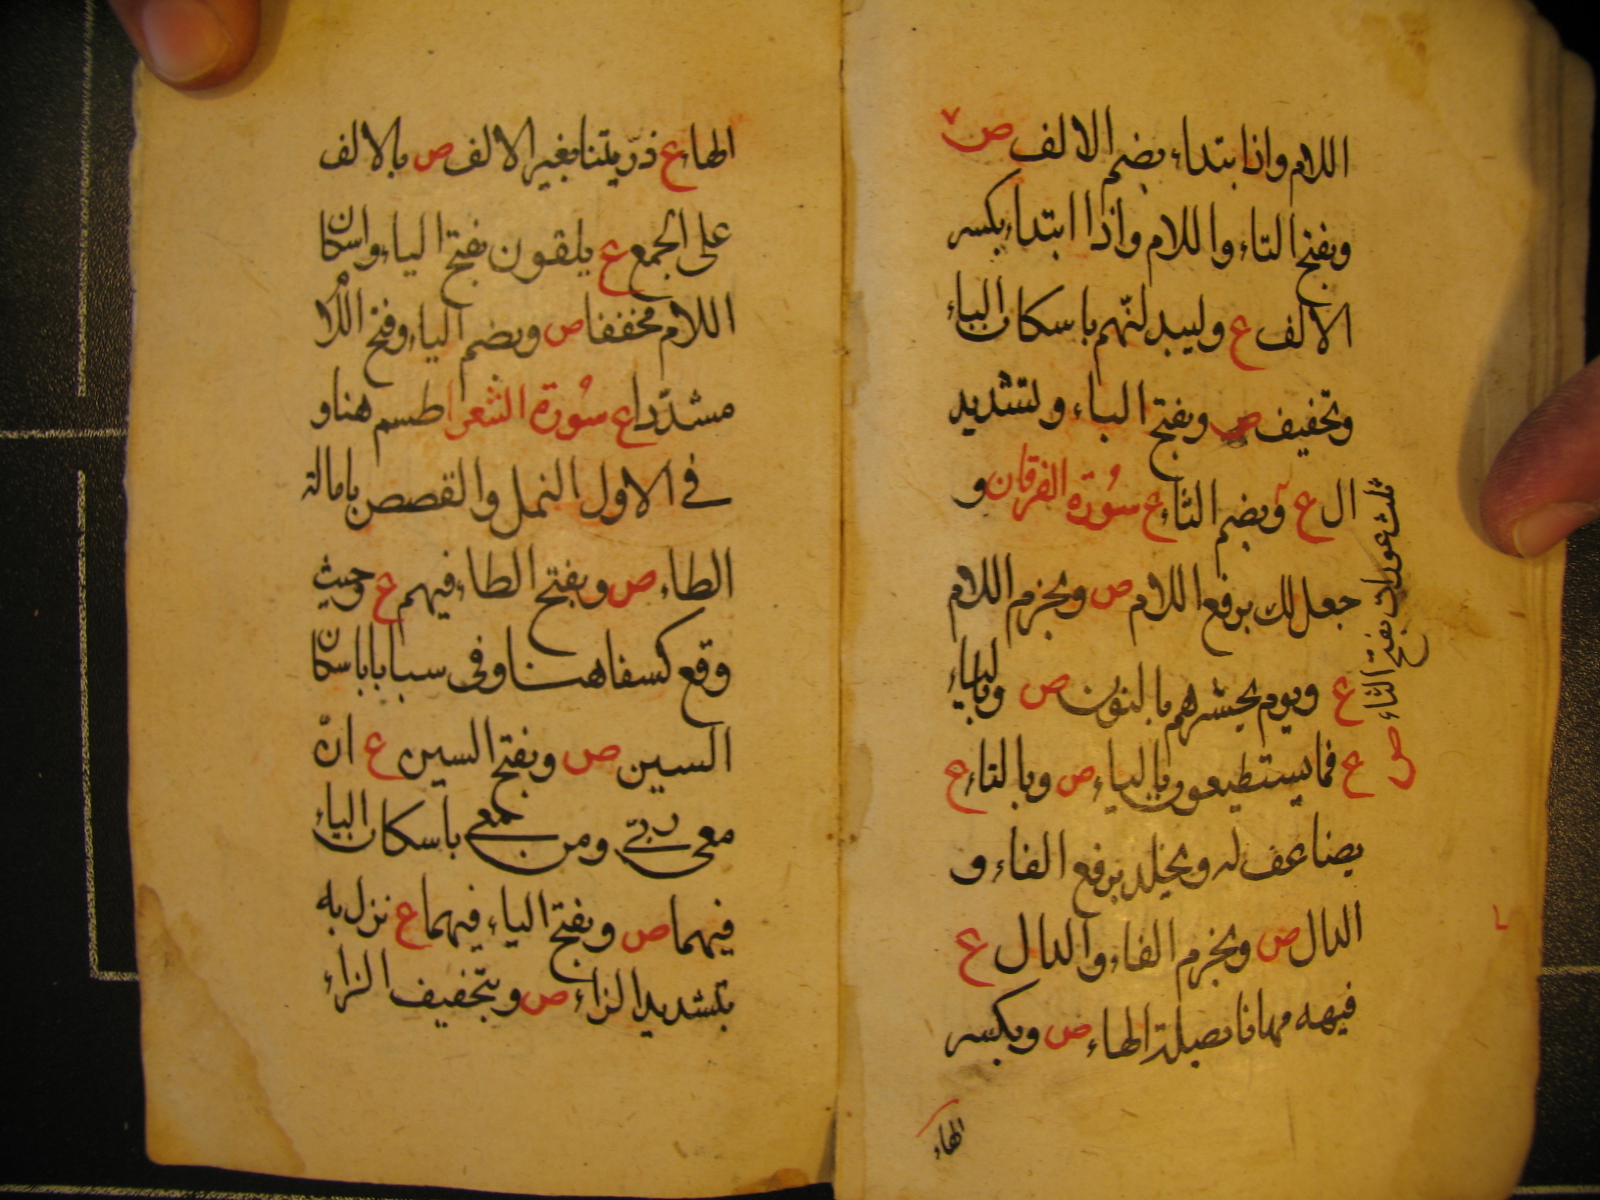 اللام واذا ابتداء بضم الالف ص
وبفتح التاء واللام واذا ابتداء بكسر
الالف ع وليبدلنّهم باسكان الباء
وتخفيف ص وبفتح الباء ولتشديد
ال ع وبضم الثاء ع سُورة الفرقان و
جعل لك برفع اللام ص وبجزم اللام
ع ويوم يحشرهم بالنون ص وبالياء
ع فما يستطيعون بالياء ص وبالتاء ع
يضاعف له ويخلد برفع الفاء و
الدال ص وبجزم الفاء والدال ع
فيهه مهانا بصلة الهاء ص وبكسر
الهاء
ثلث عورات بفتح الثاء ص
الهاء ع ذرّيتنا بغير الالف ص بالالف
على الجمع ع يلقون بفتح الياء واسكان
اللام مخففا ص وبضم الياء وفتح اللا
مشدّدا ع سُورة الشعرا طسم هنا و
في الاول النمل والقصص بامالة
الطاء ص وبفتح الطاء فيهم ع وحيث
وقع كسفا هنا وفي سبا بابا سكان
السين ص وبفتح السين ع انّ
معى ربّى ومن معى باسكان الياء
فيهما ص وبفتح الياء فيهما ع نزل به
بتشديد الزاء ص وبتخفيف الزاء